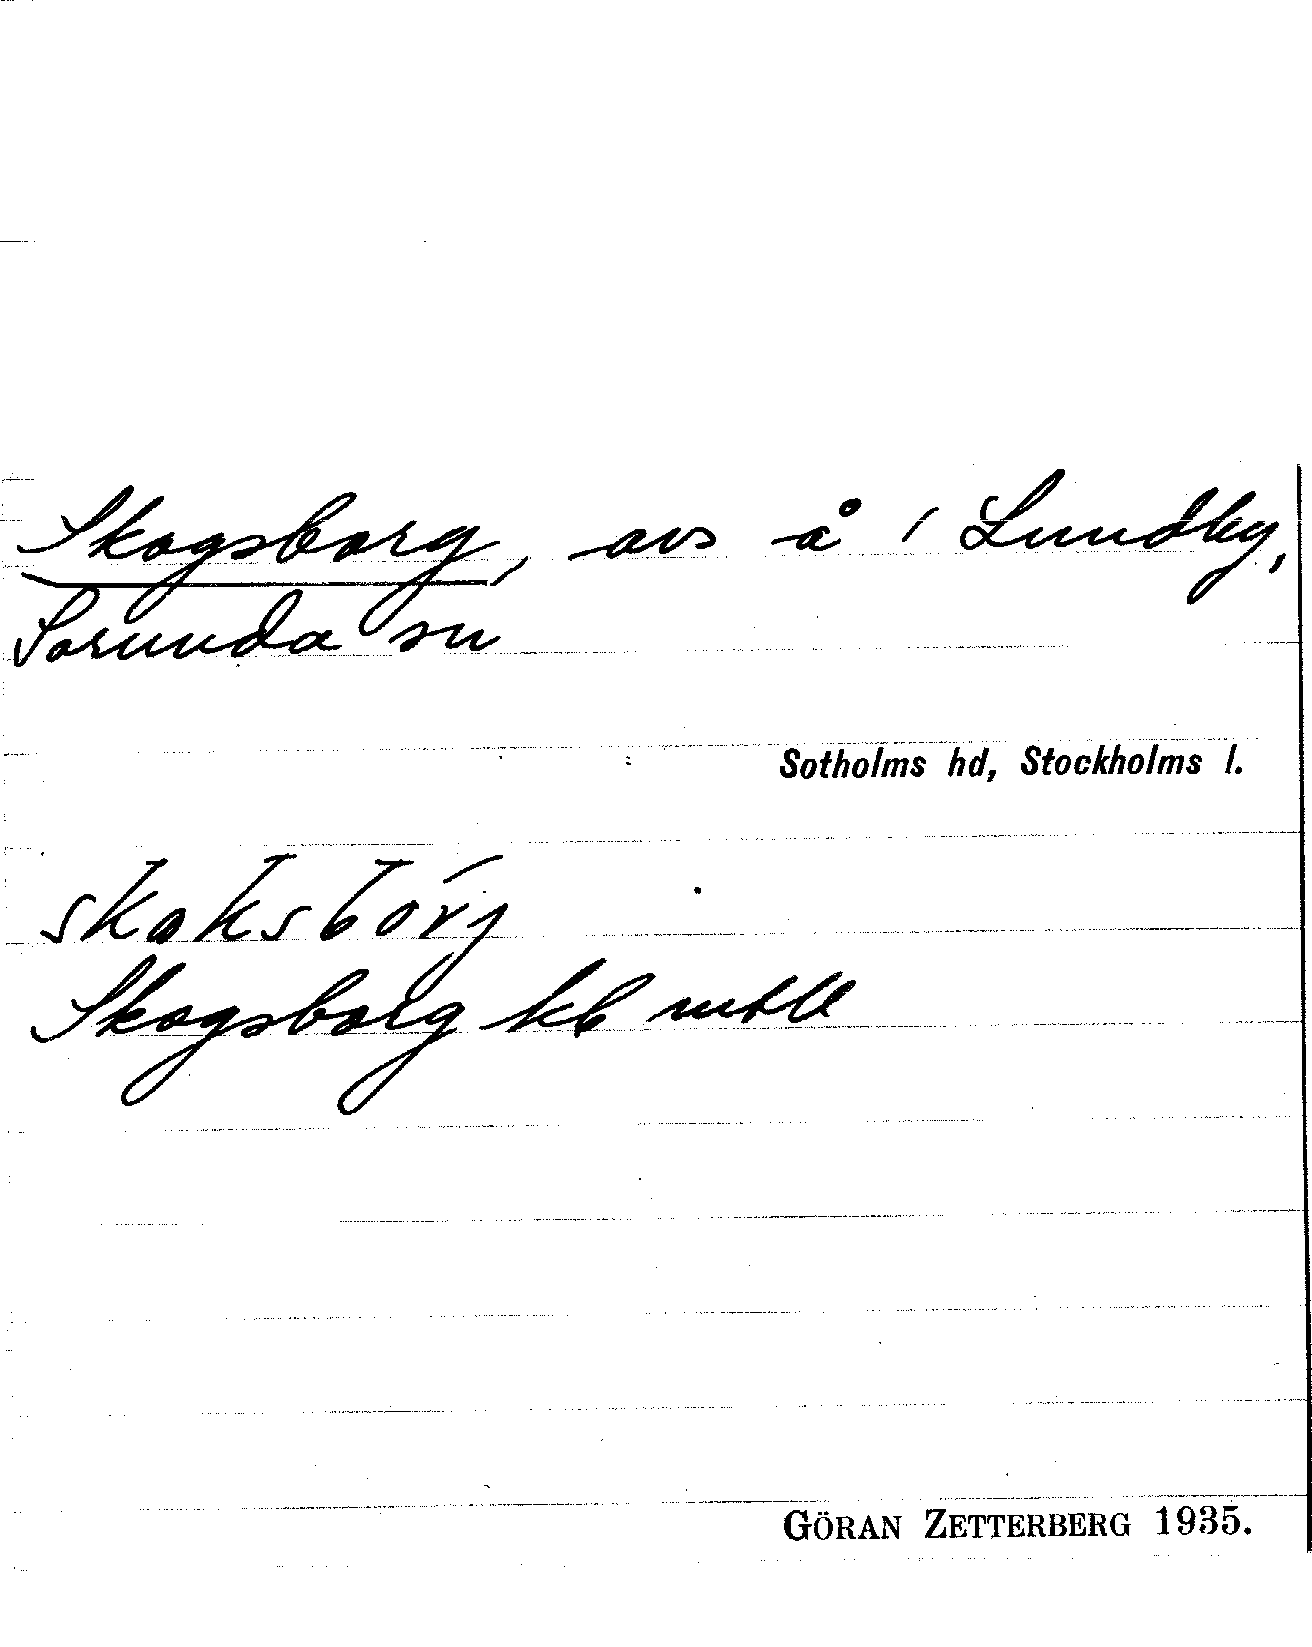 Skogsborg, avs å i Lundby,
Sorunda sn
Sotholms hd, Stockholms l.
skoksbórj
Skogsborg kb mtll
GÖRAN ZETTERBERG 1935.